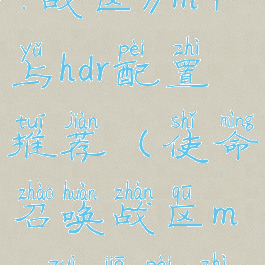 战区》m
yǔ pèi zhì
与hdr配置
tuī jiàn shǐ mìng
推荐（使命
zhào huàn zhàn qū
召唤战区m
pèi zhì